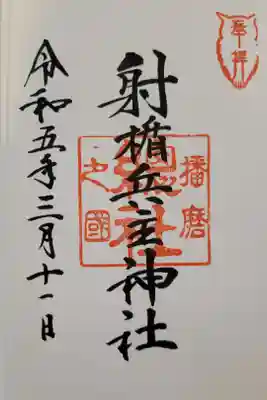 奉拝
射楯兵主神社
播磨
總社
之國
令和五年三月十一日